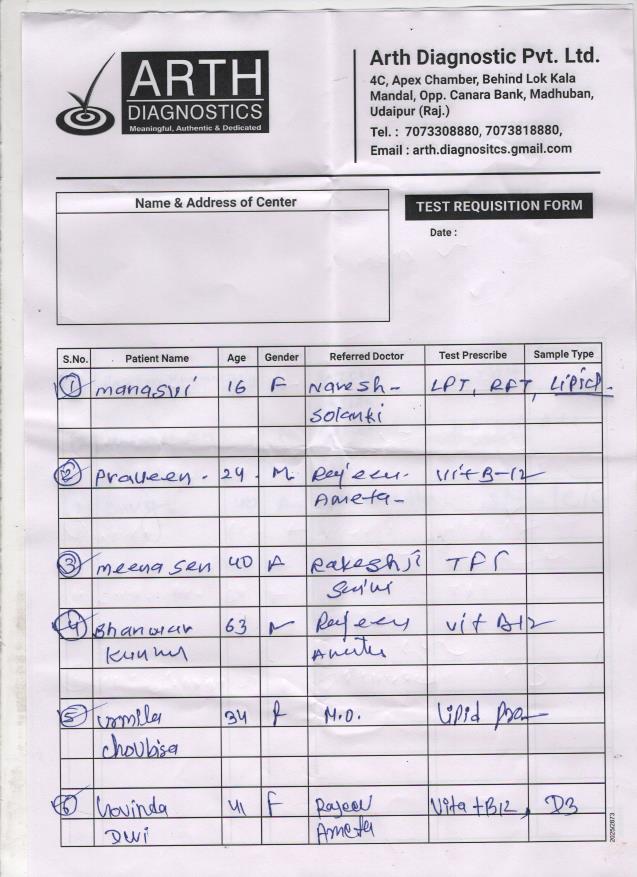 ARTH
DIAGNOSTICS
Meaningful, Authentic & Dedicated
Arth Diagnostic Pvt. Ltd.
4C, Apex Chamber, Behind Lok Kala
Mandal, Opp. Canara Bank, Madhuban,
Udaipur (Raj.)
Tel. : 7073308880, 7073818880,
Email : arth.diagnositcs.gmail.com
Name & Address of Center
TEST REQUISITION FORM
Date :
S.No. Patient Name Age Gender Referred Doctor Test Prescribe Sample Type
1 manasvi 16 F Naresh - LPT, RFT, Lipid -
Solanki
2 Praveen - 24 - M. Rajeev - Vit B-12
Ameta -
3 meena sen 40 Rakesh ji TFT
4 Bhanwar 63 Rajeev Vit B12
Ameta
5 urmila 34 F M.O. Lipid
Choubisa
6 Govinda 41 F Rajeev Vita + B12, D3
Ameta
2025/2673